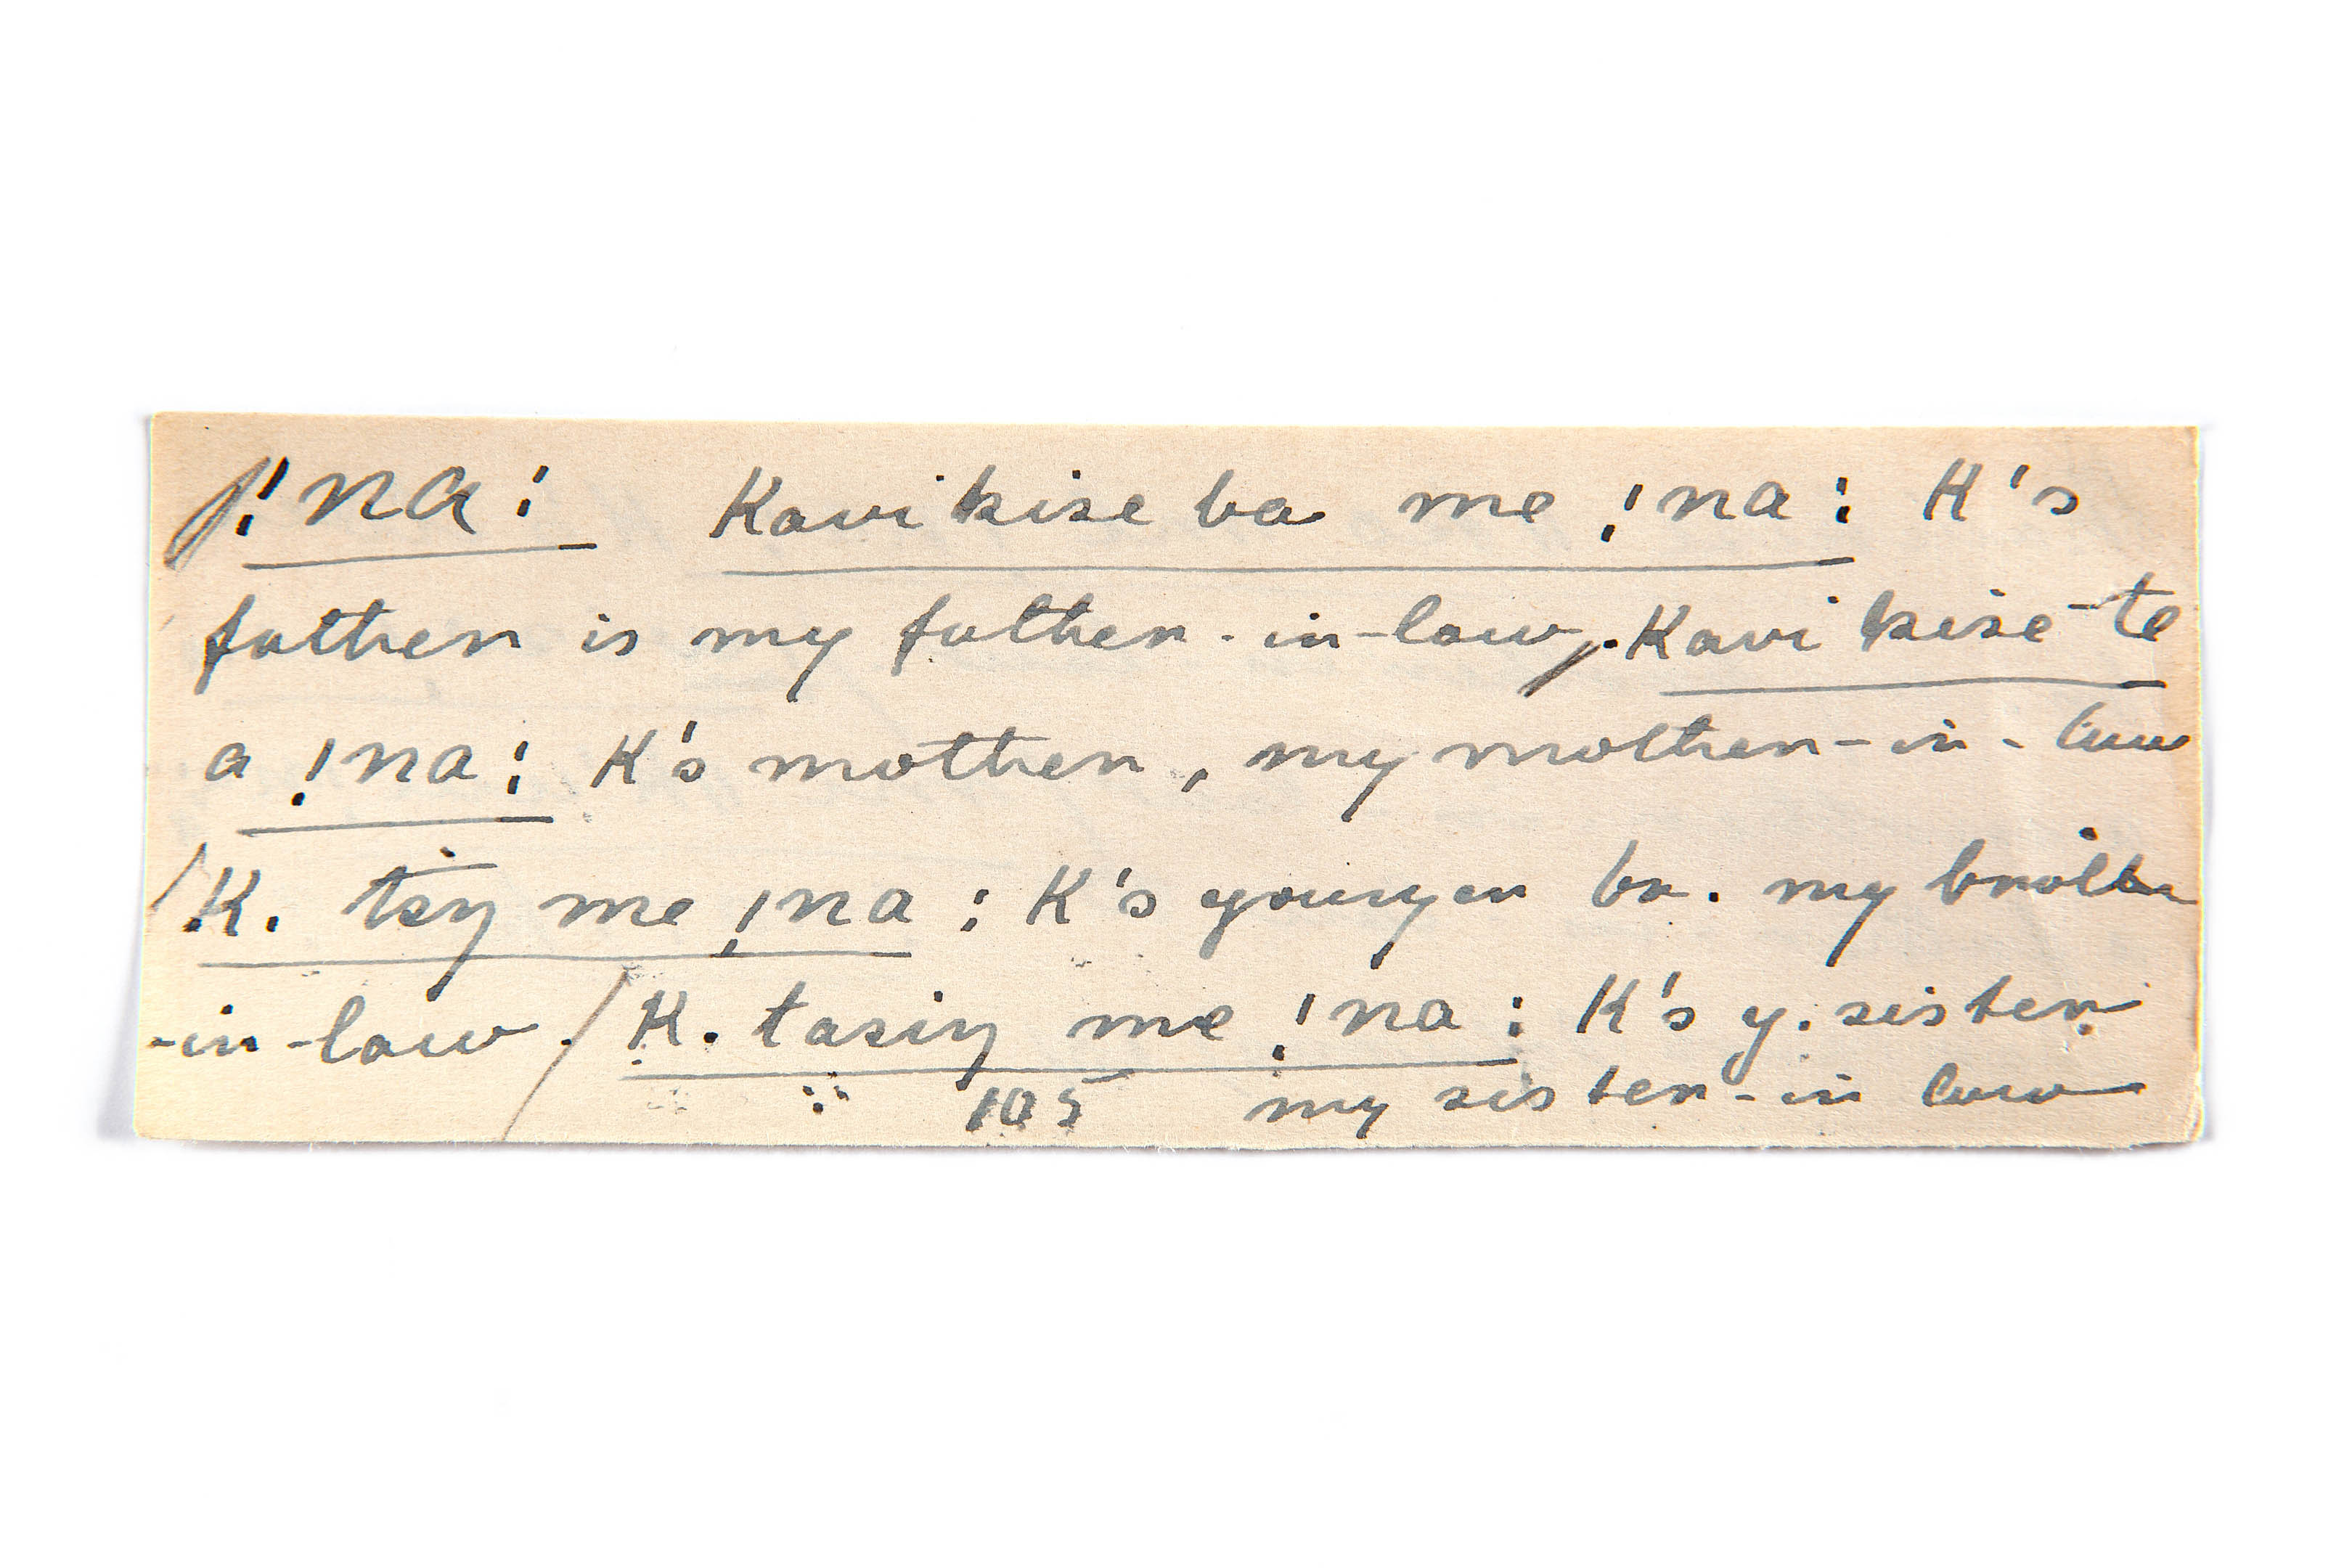 !na: Kavikise ba me !na: K's
father is my father-in-law. Kavi kise te
a !na: K's mother, my mother-in-law
/K. tsŋ me !na: K's younger br. my brother
-in-law. / K. tasiŋ me !na: K's y. sister
105 my sister-in law